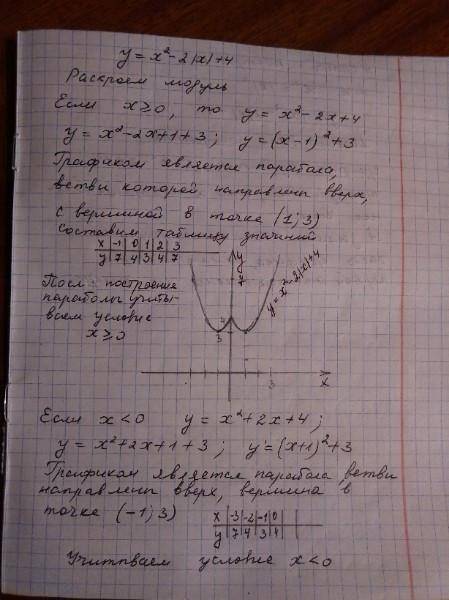 y = x² - 2|x| + 4
Раскроем модуль
Если x ≥ 0, то y = x² - 2x + 4
y = x² - 2x + 1 + 3; y = (x - 1)² + 3
Графиком является парабола,
ветви которой направлены вверх,
с вершиной в точке (1; 3)
составим таблицу значений
x | -1 | 0 | 1 | 2 | 3
y | 7 | 4 | 3 | 4 | 7
y
7
y = x² - 2|x| + 4
После построение
параболы учиты-
ваем условие
x ≥ 0
4
3
3
x
Если x < 0 y = x² + 2x + 4;
y = x² + 2x + 1 + 3; y = (x + 1)² + 3
Графиком является парабола ветви
направлены вверх, вершина в
точке (-1; 3)
x | -3 | -2 | -1 | 0
y | 7 | 4 | 3 | 4
Учитываем условие x < 0